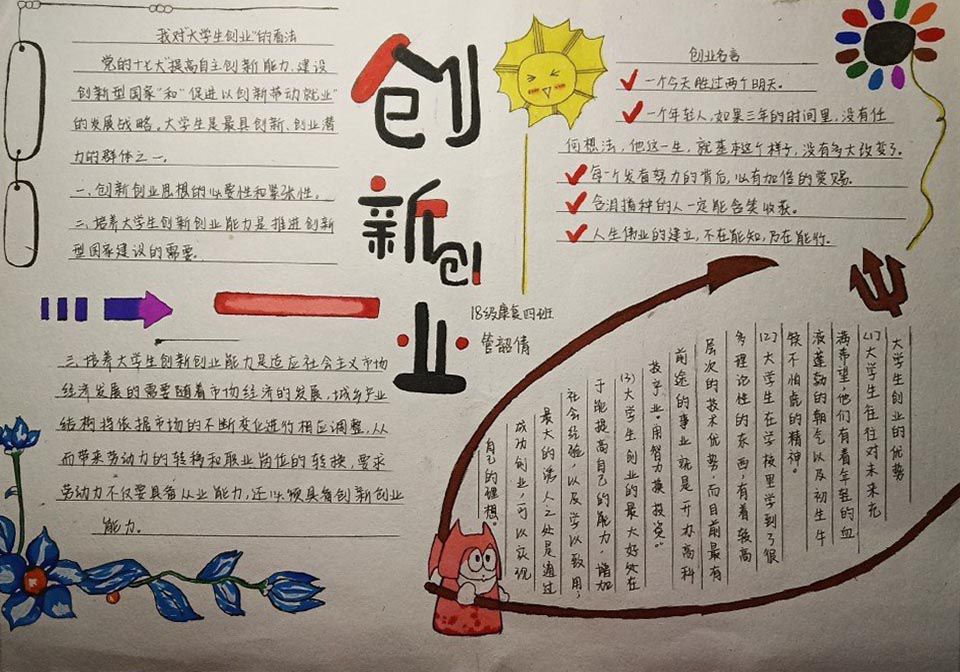 我对"大学生创业"的看法
党的十七大"提高自主创新能力、建设
创新型国家"和"促进以创新带动就业"
的发展战略。大学生是最具创新、创业潜
力的群体之一。
一、创新创业思想的必要性和紧张性。
二、培养大学生创新创业能力是推进创新
型国家建议的需要.
三、培养大学生创新创业能力是适应社会主义市场
经济发展的需要随着市场经济的发展、城乡产业
结构将依据市场的不断变化进行相应调整,从
而带来劳动力的转移和职业岗位的转换,要求
劳动力不仅要具备从业能力,还必须具备创新创业
能力.
创
新创
业
18级康复四班
管韶倩
创业名言
一个今天胜过两个明天。
一个年轻人,如果三年的时间里,没有任
何想法,他这一生,就基本这个样子,没有多大改变了。
每一个发奋努力的背后,必有加倍的赏赐。
含泪播种的人一定能含笑收获。
人生伟业的建立,不在能知,乃在能行。
大学生创业的优势
(1)大学生往往对未来充
满希望,他们有着年轻的血
液蓬勃的朝气以及初生牛
犊不怕虎的精神。
(2)大学生在学校里学到了很
多理论性的东西,有着较高
层次的技术优势,而目前最有
前途的事业就是开办高科
技产业。用智力换投资。"
(3)大学生创业的最大好处在
于能提高自己的能力、增加
社会经验,以及学以致用,
最大的诱人之处是通过
成功创业,可以实现
自己的理想。